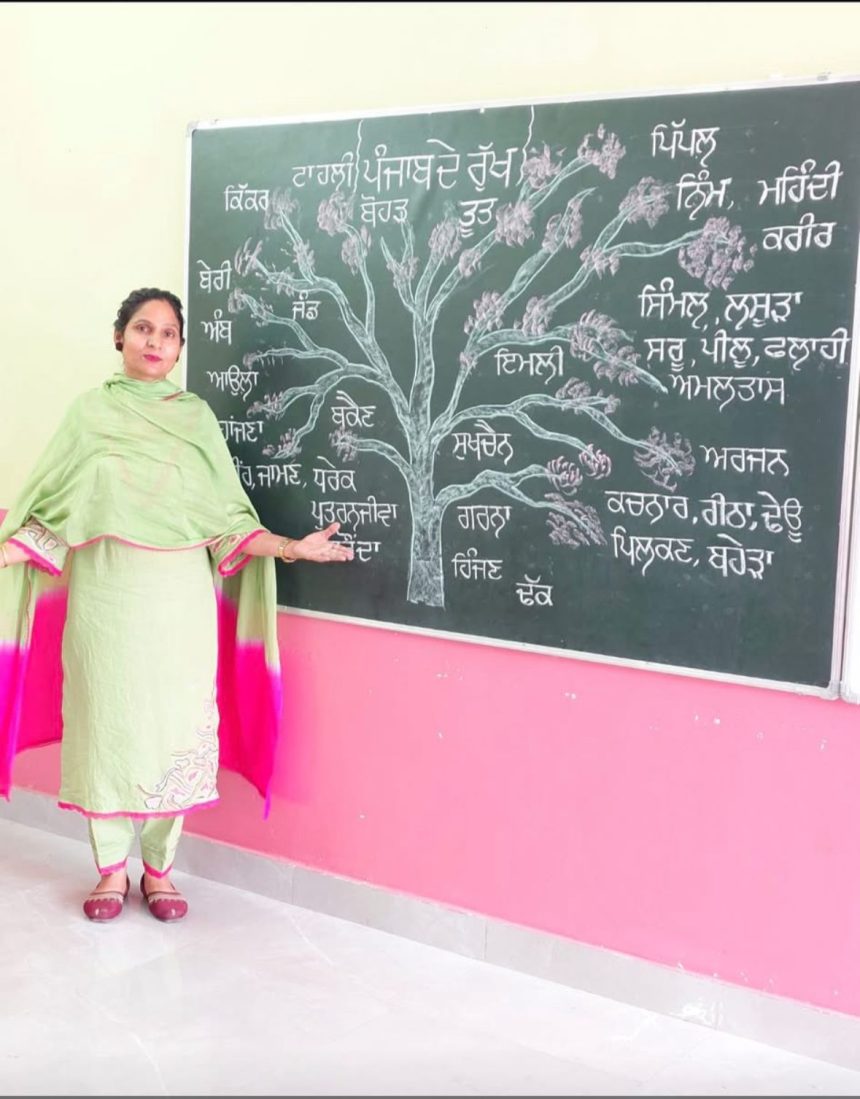 ਪੰਜਾਬ ਦੇ ਰੁੱਖ
ਟਾਹਲੀ
ਕਿੱਕਰ
ਬੋਹੜ
ਤੂਤ
ਪਿੱਪਲ਼
ਨਿੰਮ, ਮਹਿੰਦੀ
ਕਰੀਰ
ਬੇਰੀ
ਜੰਡ
ਅੰਬ
ਸਿੰਮਲ਼, ਲਸੂੜਾ
ਸਰੂ, ਪੀਲੂ, ਫਲਾਹੀ
ਇਮਲੀ
ਅਮਲਤਾਸ
ਆਉਲਾ
ਬਕੈਣ
ਸੁਖਚੈਨ
ਅਰਜਨ
ਜਾਮਣ, ਧਰੇਕ
ਪੁਤਰਨਜੀਵਾ
ਗਰਨਾ
ਕਚਨਾਰ, ਰੀਠਾ, ਢੇਊ
ਪਿਲਕਣ, ਬਹੇੜਾ
ਹਿੰਜਣ
ਢੱਕ